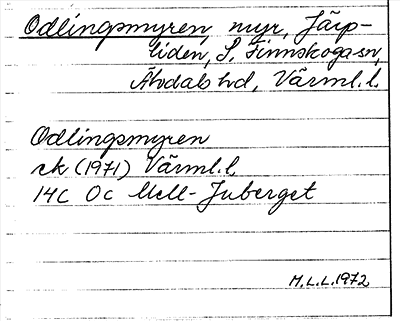 Odlingsmyren, myr, Järp-
liden, S. Finnskoga sn,
Älvdals hd, Värml. l.
Odlingsmyren
rk (1971) Värml. l.
14C 0c Mell-Juberget
M.L.L. 1972